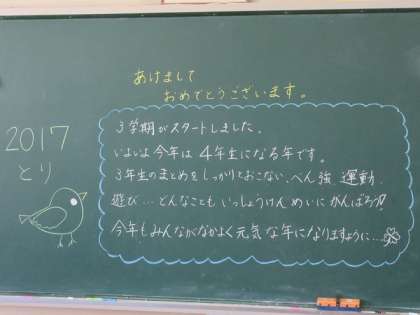 あけまして
おめでとうございます。
2017
とり
3学期がスタートしました。
いよいよ今年は4年生になる年です。
3年生のまとめをしっかりとおこない、べん強、運動、
遊び…どんなこともいっしょうけんめいにがんばろう!
今年もみんながなかよく元気な年になりますように…